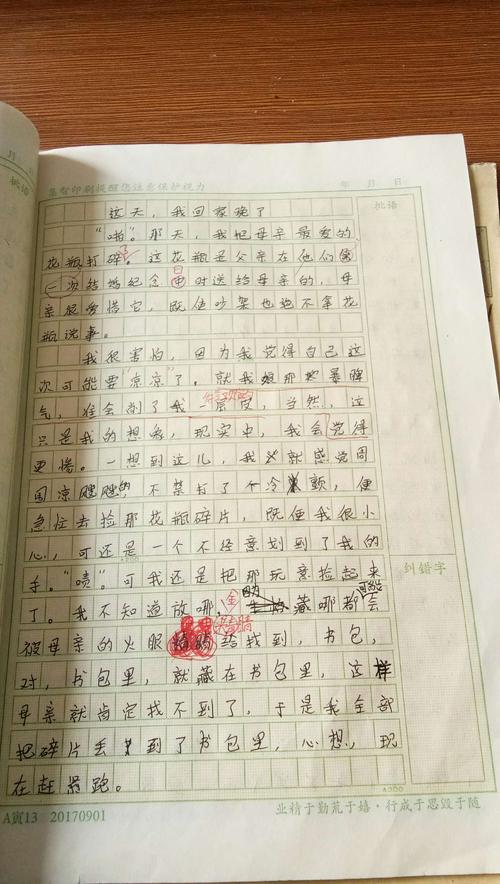 月
批语
墓智印刷提醒您注意保护视力
年 月 日
批语
这天，我回家晚了
“啪。”那天，我把母亲最爱的
花瓶打碎。这花瓶是父亲在他们第
一次结婚纪念日时送给母亲的，母
亲很爱惜它，既使吵架也绝不拿花
瓶说事。
我很害怕，因为我觉得自己这
次可能要“凉凉”了。就我娘那暴脾
气，准会削了我一层皮，当然，这
只是我的想象，现实中，我会觉得
更惨。一想到这儿，我就感觉周
围凉飕飕的，不禁打了个冷颤，便
急忙去捡那花瓶碎片，既便我很小
心，可还是一个不经意划到了我的
手。“啧。”可我还是把那玩意捡起来
了。我不知道放哪，藏哪都会
可能
被母亲的火眼金睛给找到，书包，
对，书包里，就藏在书包里，这样
母亲就肯定找不到了，于是我全部
把碎片丢到了书包里，心想，现
在赶紧跑。
纠错字
A寅13 20170901
业精于勤荒于嬉·行成于思毁于随